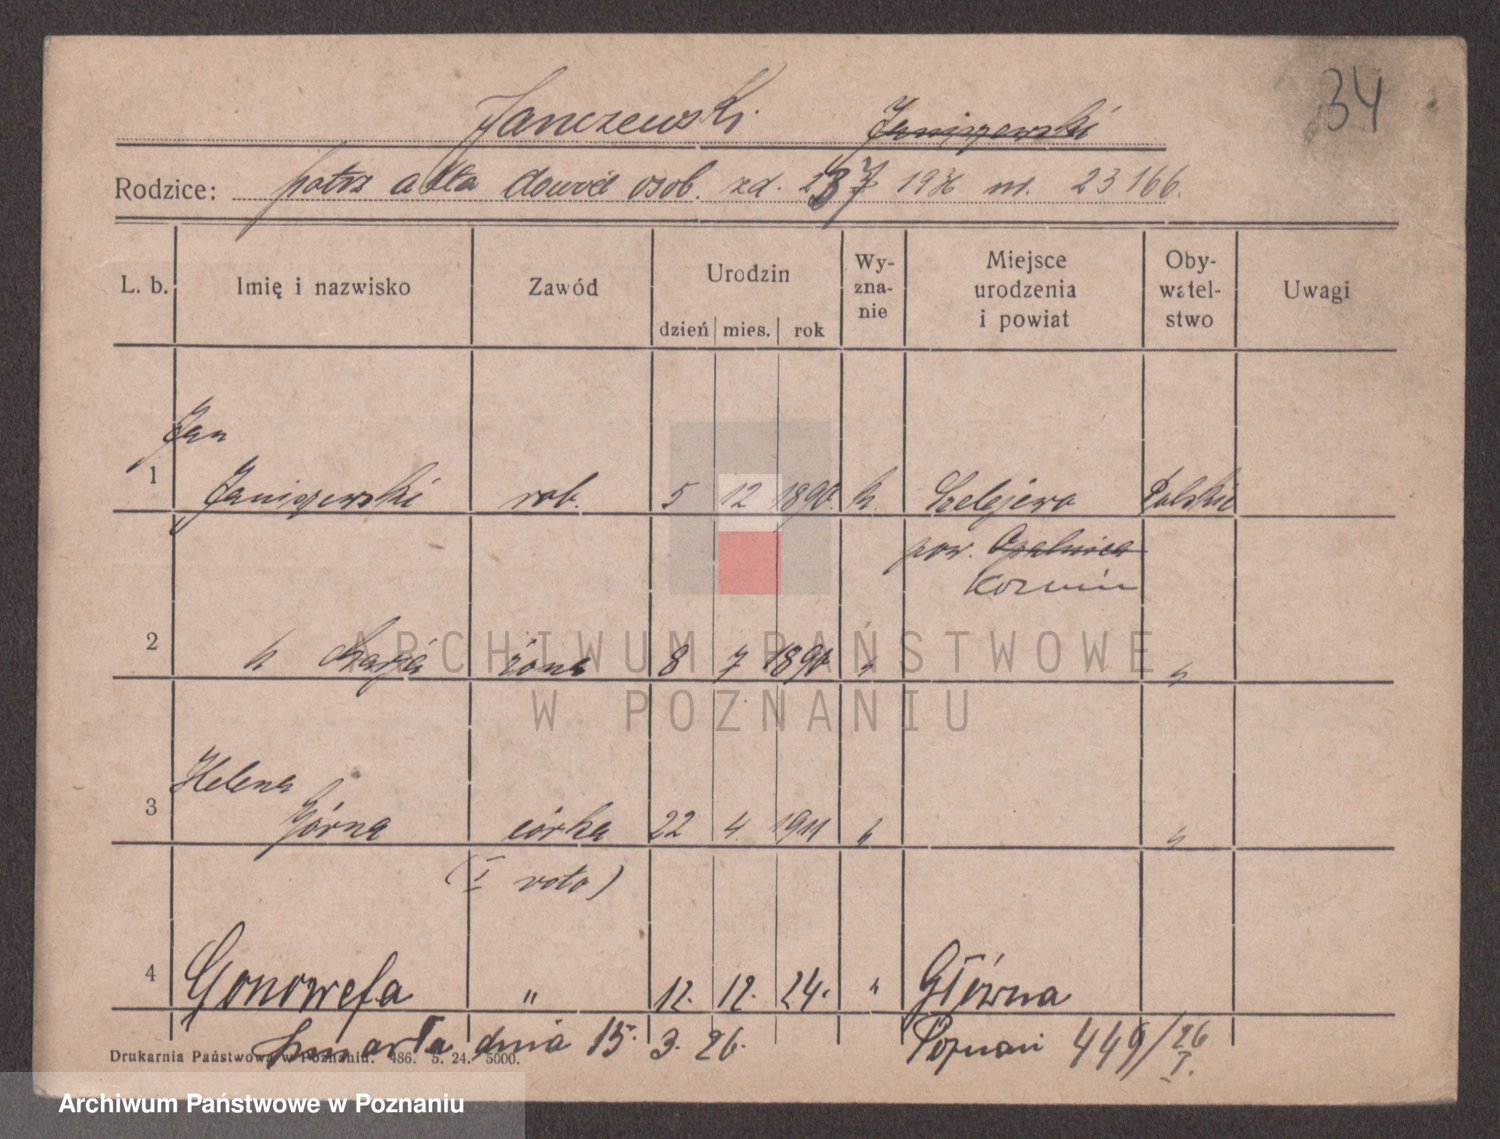 34
Janczewski. Janiszewski
Rodzice: patrz akta dowód osob. zd. 7 1936 nr. 23166.
L. b. Imię i nazwisko Zawód Urodzin dzień mies. rok Wy-zna-nie Miejsce urodzenia i powiat Oby-watel-stwo Uwagi
Jan
1 Janiszewski rob. 5 12 1890 k. Szelejewo Polskie
pow. Opalnica
Kozmin
2 " Marja żona 8 7 1890 " "
Helena
3 Górna córka 22 4. 1911 " "
(I voto)
4 Gonowefa " 12. 12. 24. " Główna
zmarła dnia 15. 3. 26. Poznań 449/26 I.
Drukarnia Państwowa w Poznaniu. 486. 5. 24. 5000.
ARCHIWUM PAŃSTWOWE
W POZNANIU
Archiwum Państwowe w Poznaniu